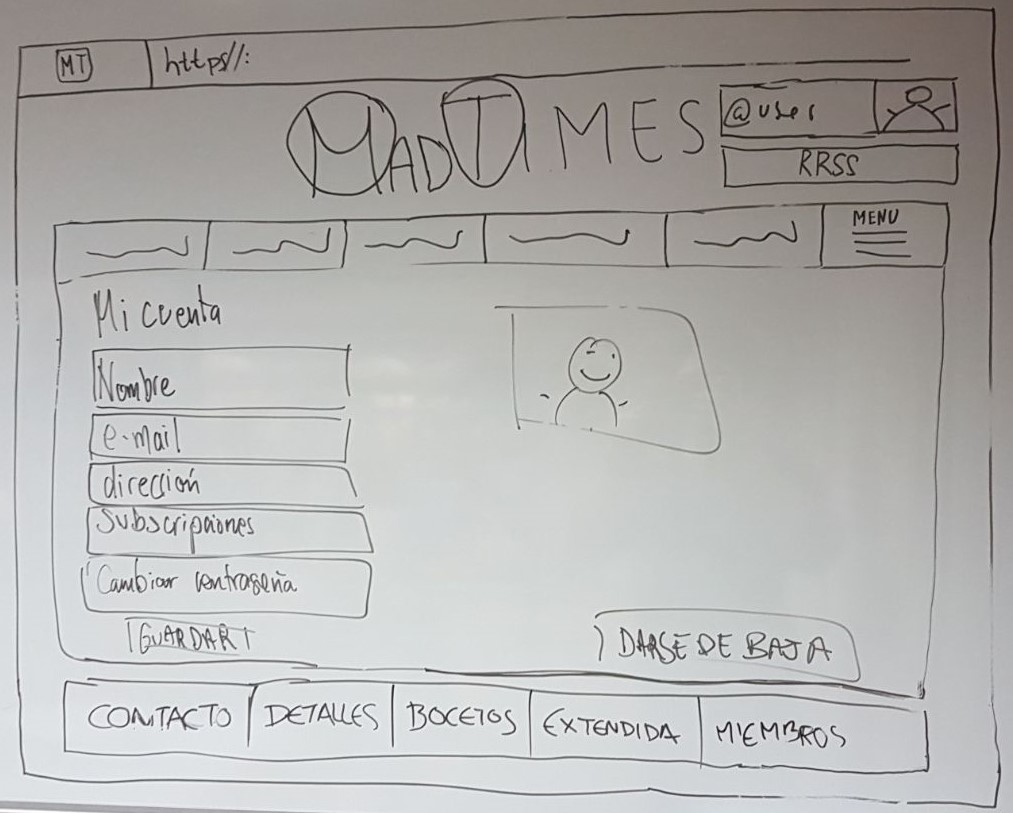 MT https//:
MADTIMES
@user
RRSS
MENU
Mi cuenta
Nombre
e-mail
dirección
Subscripciones
Cambiar contraseña
GUARDAR
DARSE DE BAJA
CONTACTO DETALLES BOCETOS EXTENDIDA MIEMBROS